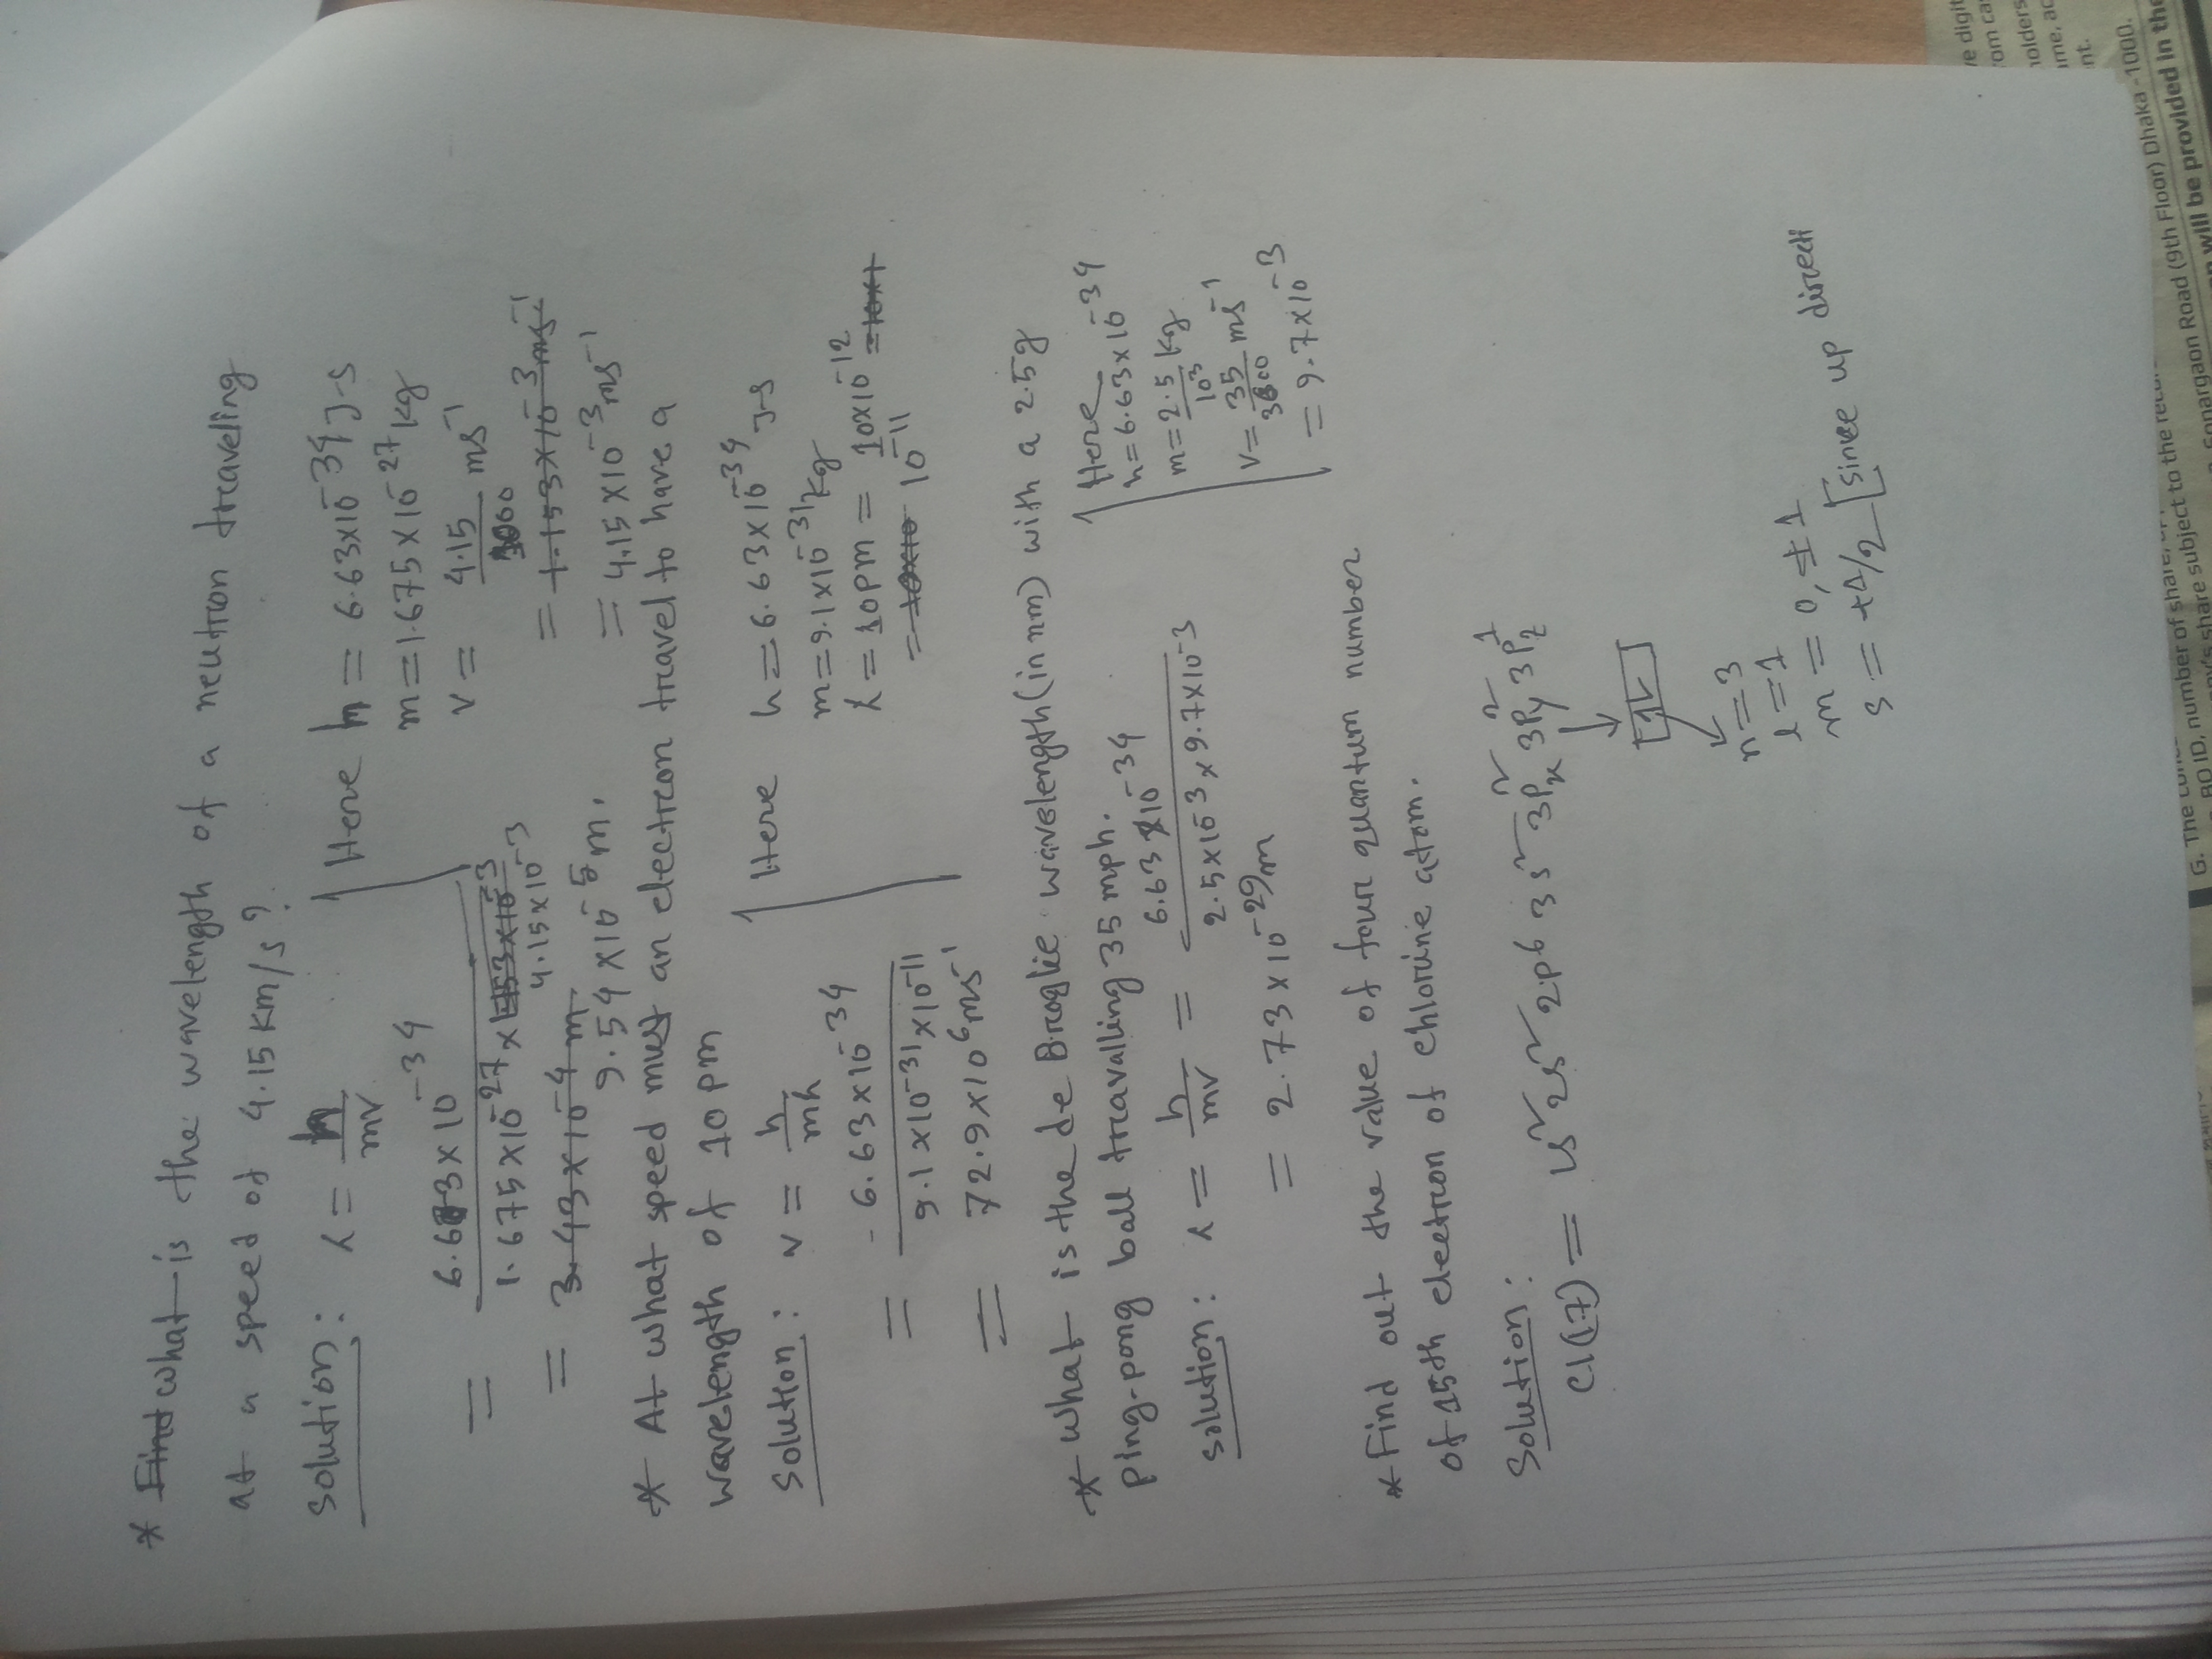 * Find what is the wavelength of a neutron traveling
at a speed of 4.15 Km/s?
Solution: λ = h/mv
Here h = 6.63×10⁻³⁴ J-s
m = 1.675×10⁻²⁷ kg
v = 4.15/1000 ms⁻¹
= 1.153×10⁻³ ms⁻¹
= 4.15×10⁻³ ms⁻¹
= 6.63×10⁻³⁴ / 1.675×10⁻²⁷ × 1.153×10⁻³
4.15×10⁻³
= 3.43×10⁻⁴ m
9.54×10⁻⁵ m.
* At what speed must an electron travel to have a
wavelength of 10 pm
Solution: v = h/mλ
= 6.63×10⁻³⁴ / 9.1×10⁻³¹×10⁻¹¹
= 72.9×10⁶ ms⁻¹
Here h = 6.63×10⁻³⁴ J-s
m = 9.1×10⁻³¹ kg
λ = 10 pm = 10×10⁻¹² = 10×1
= 10×10 10⁻¹¹
* What is the de Broglie wavelength (in nm) with a 2.5g
ping-pong ball travalling 35 mph.
Solution: λ = h/mv = 6.63×10⁻³⁴ / 2.5×10⁻³×9.7×10⁻³
= 2.73×10⁻²⁹ m
Here
h = 6.63×10⁻³⁴
m = 2.5/10³ kg
v = 35/3600 ms⁻¹
= 9.7×10⁻³
* Find out the value of four quantum number
of 15th electron of chlorine atom.
Solution:
Cl(17) = 1s² 2s² 2p⁶ 3s² 3Pₓ² 3Pᵧ² 3P_z¹
↓
1L
n = 3
l = 1
m = 0, ±1
s = +1/2 [since up directi
ve digit
rom ca
holders
ame, ac
nt.
BO ID, number of share,
G. The
's share subject to the
Sonargaon Road (9th Floor) Dhaka -1000.
will be provided in the